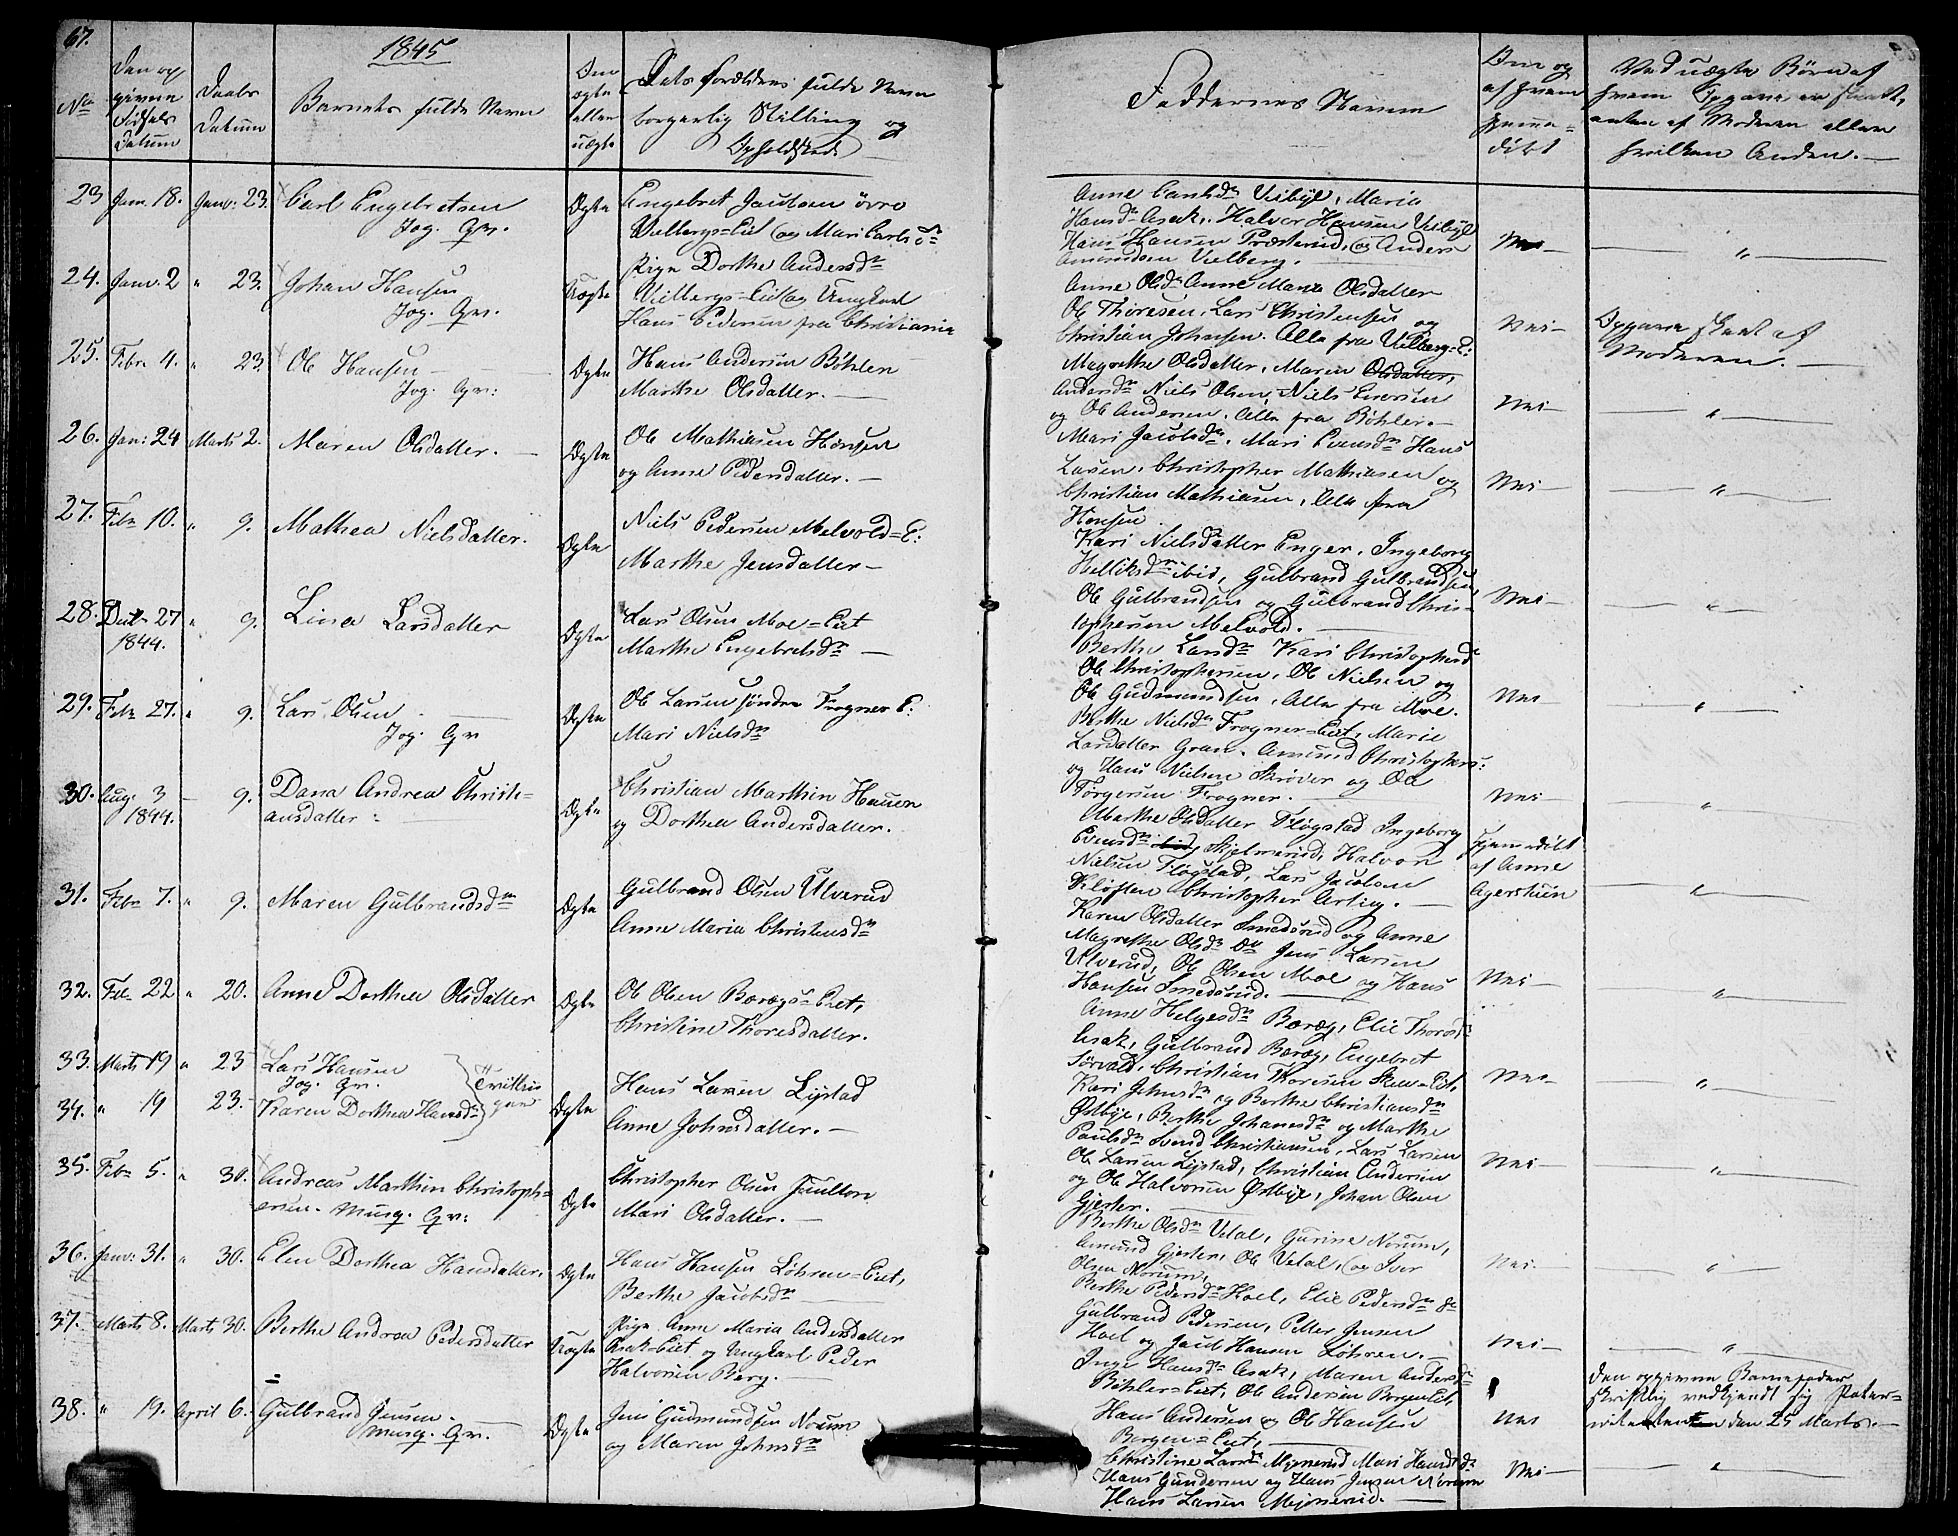 67.
1845
No
Den op
given
Fødsels
Datum
Daabs
Datum
Barnets fulde Navn
Om
ægte
eller
uægte
Dets Forældres fulde Navn
borgerlig Stilling og
Opholdssted
Faddernes Navne
Om og
af hvem
hjemme-
døbt
Ved uægte Børn af
hvem Opgave er skeet,
enten af Moderen eller
hvilken Anden.
23 Jan. 18. Janv: 23. Carl Engebretsen
Jog. Gv.
Ægte
Engebret Paulsen øvre
Vilbergs=Eiet og Mari Carlsd
Anne Carlsdr Visbye, Maria
Hansdr Asak, Halvor Hansen Visbye
Hans Hansen Præsterud, og Anders
Amundsen Vilberg.
Nei
24. Janv. 2 " 23. Johan Hansen
Jog. Gv.
Uægte
Pige Dorthe Andersdr
Vilbergs-Eie og Ungkarl
Hans Pedersen fra Christiania
Anne Olsdr Anne Maria Olsdatter
Ole Thoresen, Lars Christensen og
Christian Johnsen. Alle fra Vilberg=E:
Nei
Opgave skeet af
Moderen.
25. Febr. 4. " 23. Ole Hansen
Jog. Gv:
Ægte
Hans Andersen Bøhler
Marthe Olsdatter.
Magrethe Olsdatter, Maren Olsdatter,
Andersdr Niels Olsen, Niels Iversen
og Ole Andersen. Alle fra Bøhler.
Nei
"
26. Jan: 24 Marts 2. Maren Olsdatter.
Ægte
Ole Mathiasen Hønsen
og Anne Pedersdatter.
Mari Jacobsdr, Mari Evensdr Hans
Larsen, Christopher Mathiasen og
Christian Mathiasen, Alle fra
Hønsen.
Nei
"
27. Febr 10. " 9. Mathea Nielsdatter.
Ægte
Niels Pedersen Melvold=E:
Marthe Jensdatter
Kari Nielsdatter Enger, Ingeborg
Helliksdr ibid, Gulbrand Gulbrandsen,
Ole Gulbrandsen og Gulbrand Chris-
tophersen Melvold.
Nei
"
28. Dcbr 27 " 9. Lina Larsdatter
1844.
Ægte
Lars Olsen Moe=Eiet
Marthe Engebretsdr
Berthe Larsdr Kari Christophersd
Ole Christophersen, Ole Nielsen og
Ole Gudmundsen, Alle fra Moe.
Nei
"
29. Febr 27. " 9. Lars Olsen
Jog. Gv
Ægte
Ole Larsen søndre Frogner E:
Mari Nielsdr
Berthe Nielsdr Frogner=Eiet, Marie
Larsdatter Gran. Amund Christophers:
og Hans Nielsen Skrøver og Ole
Torgersen Frogner.
Nei
"
30. Aug. 3 9. Dana Andrea Christi-
1844. ansdatter
Ægte
Christian Marthin Hansen
og Dorthea Andersdatter.
Marthe Olsdatter Fløgstad Ingeborg
Evensdr ibid, Skjelmerud, Halvor
Nielsen Fløgstad, Lars Jacobsen
Kløften Christopher Arteig.
Hjemmedøbt
af Anne
Agerstuen
"
31. Febr 7. " 9. Maren Gulbrandsdr
Ægte
Gulbrand Olsen Ulverud
Anne Maria Christensdr
Karen Olsdatter Smedsrud og Anne
Magrethe Olsdr Do Jens Larsen
Ulverud, Ole Olsen Moe og Hans
Hansen Smedsrud.
Nei
"
32. Feb. 22 " 20. Anne Dorthea Olsdatter
Ægte
Ole Olsen Baragø=Eiet,
Christine Thoresdatter.
Anne Helgesdr Barøg, Elie Thoresd
Asak, Gulbrand Barøg, Engebret
Sørvald, Christian Thoresen Skea=Eiet,
Nei
"
33. Marts 19 " 23 Lars Hansen
Jog. Gv.
Tvillin
ger
34. " 19 23. Karen Dorthea Hansdr
Ægte
Hans Larsen Lystad
Anne Johnsdatter.
Kari Johnsdr og Berthe Christiansdr
Østbye, Berthe Johansdr og Marthe
Paulsdr Svend Christiansen, Lars Larsen
Ole Larsen Lystad, Christian Andersen
og Ole Halvorsen Østbye, Johan Olsen
Gjester.
Nei
"
35. Febr 5. " 30. Andreas Marthin Christoph=
ersen. Musq. Gv:
Ægte
Christopher Olsen
Mari Olsdatter.
Berthe Olsdr Vetal, Gurine Norum,
Amund Gjester, Ole Vetal, og Iver
Olsen Norum,
Nei
"
36. Janv: 31. " 30. Elen Dorthea Hansdatter.
Ægte
Hans Hansen Løhren=Eiet,
Berthe Jacobsdr
Berthe Pedersdr Hoel, Elie Pedersdr do
Gulbrand Pedersen, Petter Jensen
Hoel og Jacob Hansen Løhren.
Nei
"
37. Marts 8. Marts 30. Berthe Andrea Pedersdatter
Uægte
Pige Anne Maria Andersdatter
Asak=Eiet og Ungkarl Peder
Halvorsen Berg.
Inge Hansdr Asak, Maren Andersdr
Bøhler=Eiet, Ole Andersen Bergs Eiet,
Hans Andersen og Ole Hansen
Bergen=Eiet,
Nei
Den opgivne Barnefader
skriftlig vedkjendt sig Pater-
niteten den 25 Marts.
38. " 19. April 6. Gulbrand Jensen.
Musq. Gv.
Ægte
Jens Gudmundsen Norum
og Maren Johnsdr
Christine Larsdr Mjønerud Mari Hansdr do
Hans Gundersen og Hans Jensen Norum
Hans Larsen Mejonerud.
Nei
"